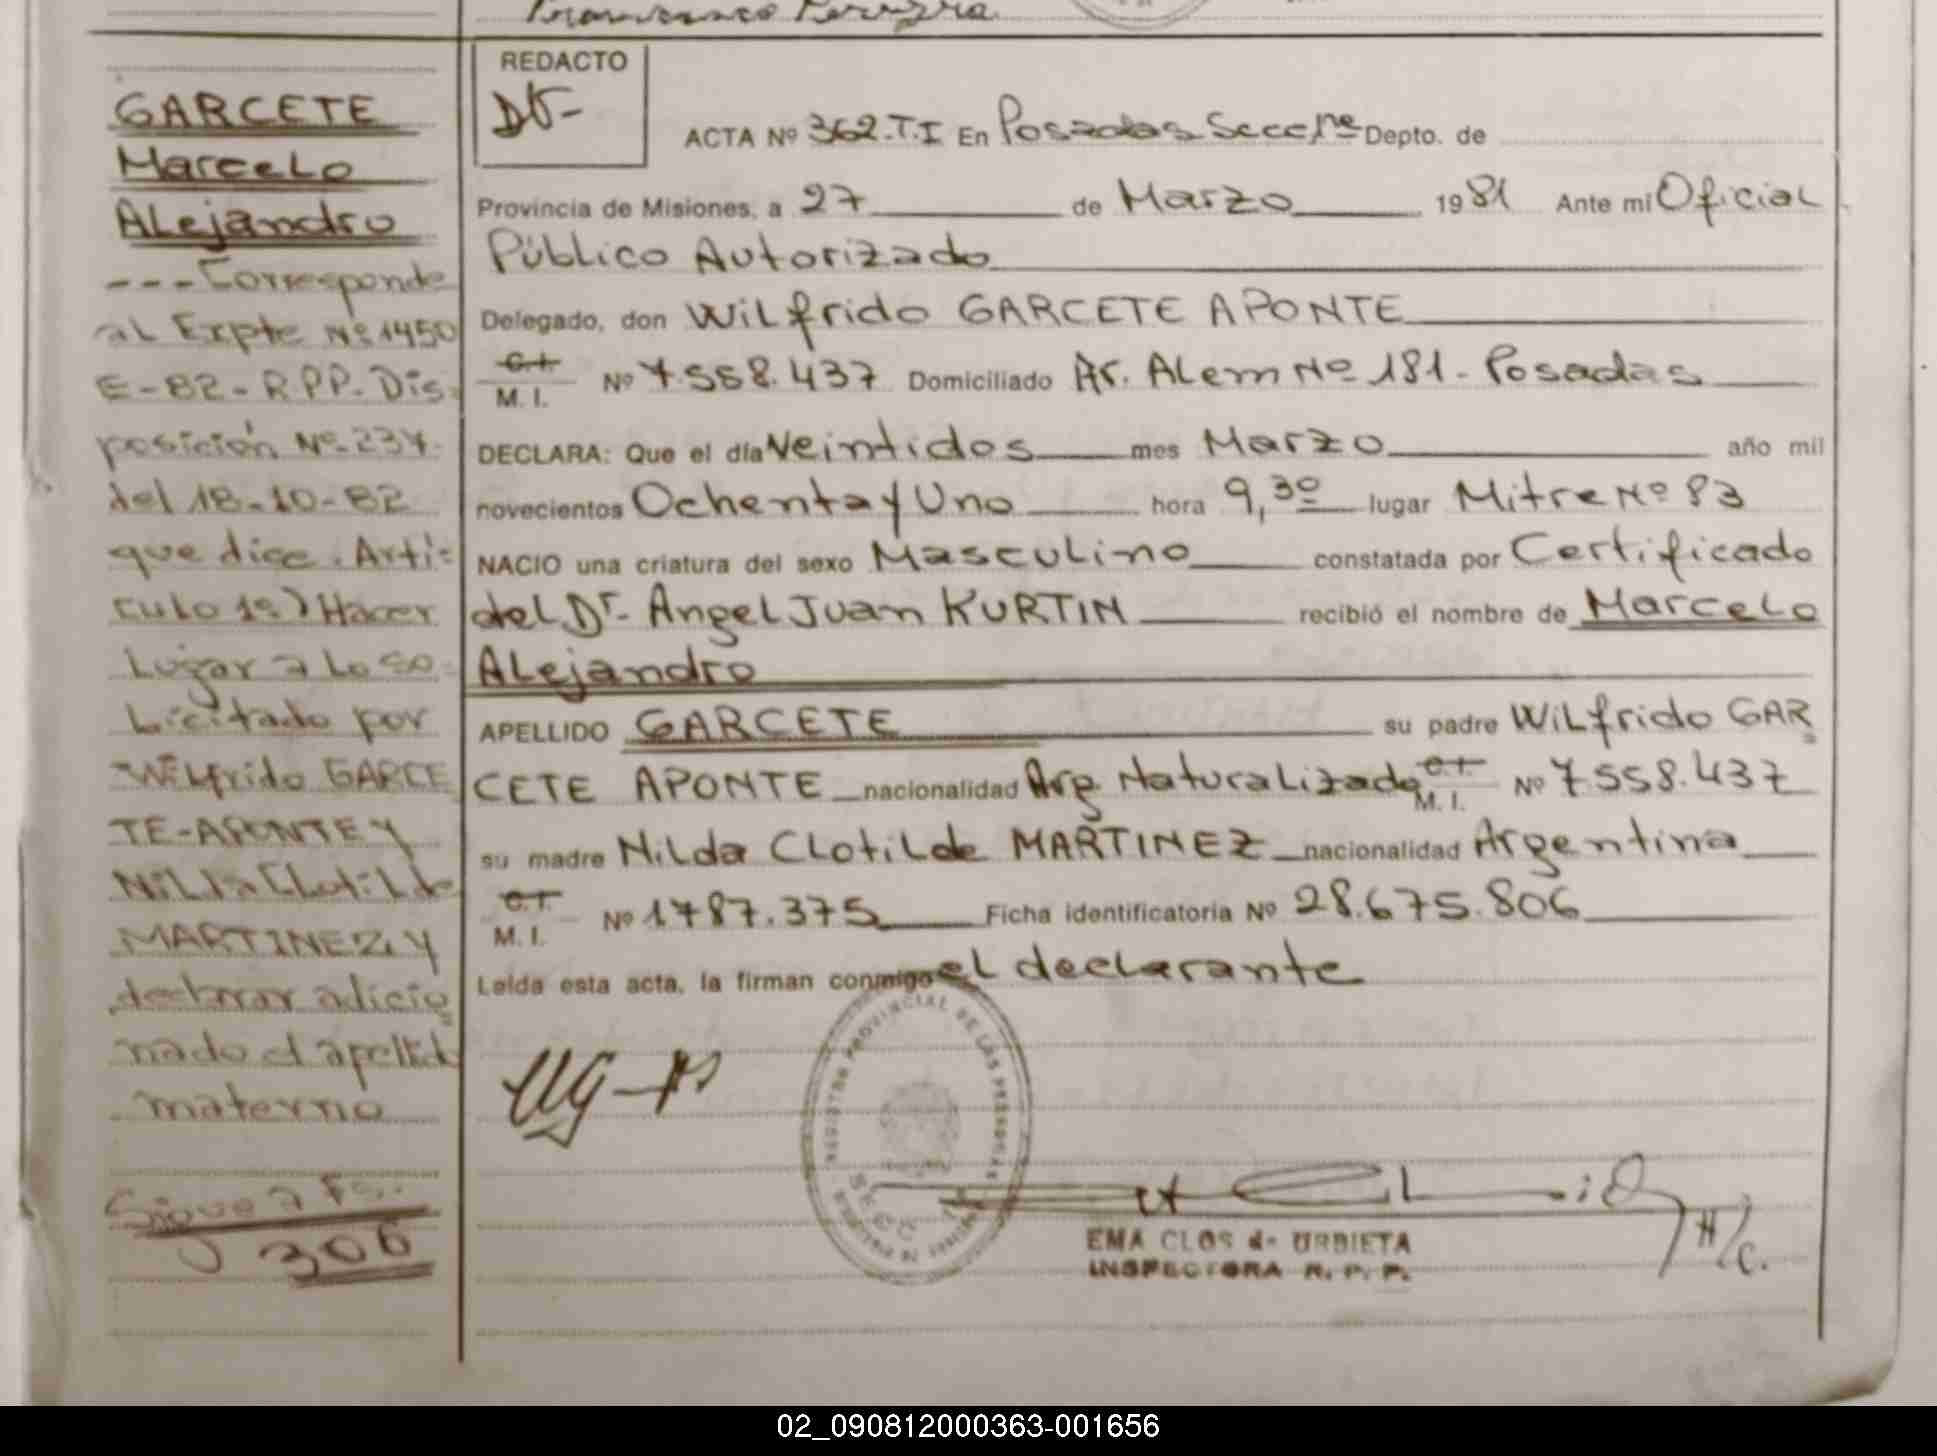 Francesco
GARCETE
Marcelo
Alejandro
--- Corresponde
al Expte Nº 1450
E-82-R.P.P. Dis-
posición Nº 234
del 18-10-82
que dice. Artí-
culo 1º) Hacer
Lugar a Lo so-
Licitado por
Wilfrido GARCE
TE-APONTE y
Nilda Clotilde
MARTINEZ, y
declarar adicio
nado el apellid
materno
Sigue a Fs.
306
REDACTO
ACTA Nº 362.T.I En Posadas Secc 1ª Depto. de
Provincia de Misiones, a 27 de Marzo 1981 Ante mi Oficial
Público Autorizado
Delegado, don Wilfrido GARCETE APONTE
C.I.
M. I. Nº 7.558.437 Domiciliado Av. Alem Nº 181 - Posadas
DECLARA: Que el día Veintidos mes Marzo año mil
novecientos Ochenta y Uno hora 9,30 lugar Mitre Nº 83
NACIO una criatura del sexo Masculino constatada por Certificado
del Dr. Angel Juan KURTIN recibió el nombre de Marcelo
Alejandro
APELLIDO GARCETE su padre Wilfrido GAR
CETE APONTE nacionalidad Arg. Naturalizado C.I. M. I. Nº 7558.437
su madre Nilda Clotilde MARTINEZ nacionalidad Argentina
C.I.
M. I. Nº 1787.375 Ficha identificatoria Nº 28.675.806
Leída esta acta, la firman conmigo el declarante
REGISTRO PROVINCIAL DE LAS PERSONAS
SECC
EMA CLOS de URBIETA
INSPECTORA R. P. P.
02_090812000363-001656